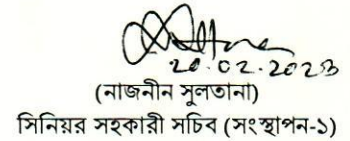 20.02.2023
(নাজনীন সুলতানা)
সিনিয়র সহকারী সচিব (সংস্থাপন-১)